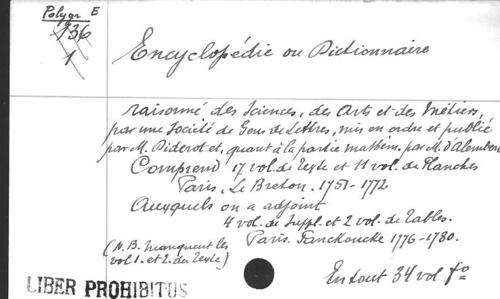 Polygr E
136
1
Encyclopédie ou Dictionnaire
raisonné des Sciences, des Arts et des Métiers,
par une Société de Gens de Lettres, mis en ordre et publié
par M. Diderot et, quant à la partie mathém. par M. d'Alembert
Comprend 17 vol. de Texte et 11 vol. de Planches
Paris, Le Breton. 1751-1772
Auxquels on a adjoint
4 vol. de Suppl. et 2 vol. de Tables.
Paris. Panckoucke 1776-1780.
(N.B. Manquent les
vol 1. et 2. du Texte)
En tout 34 vol fo
LIBER PROHIBITUS